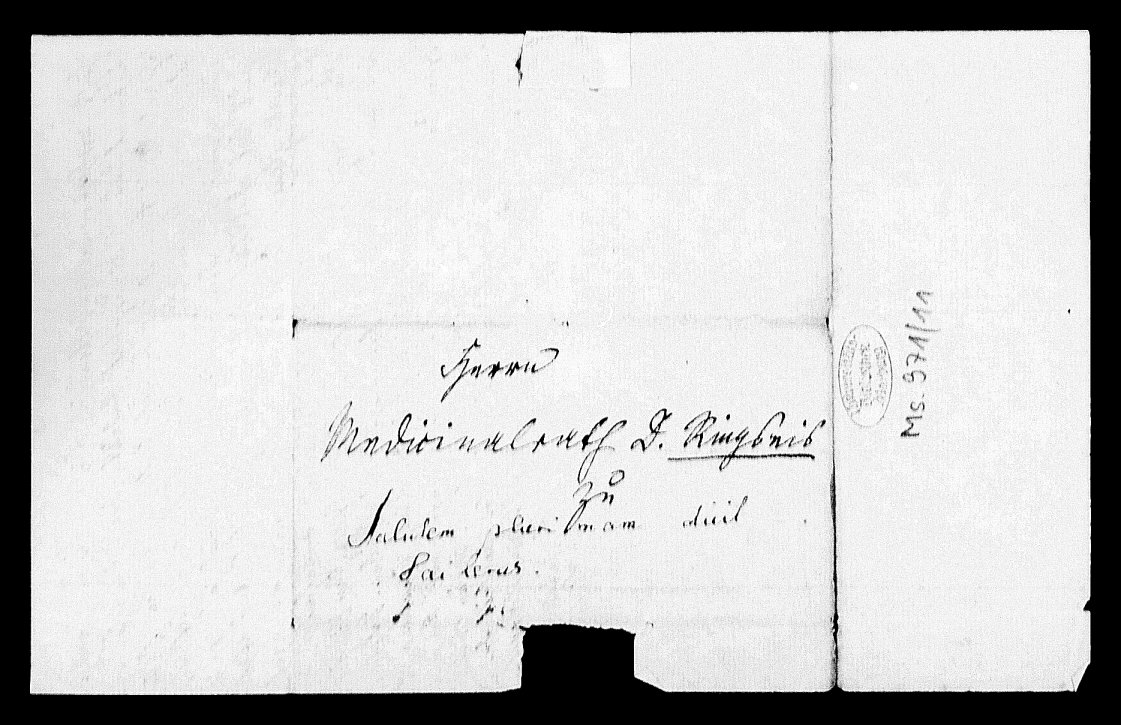 Herrn
Medicinalrath D. Ringseis
zu
Salutem plurimam dicit
Sailerus.
Ms. 971/11